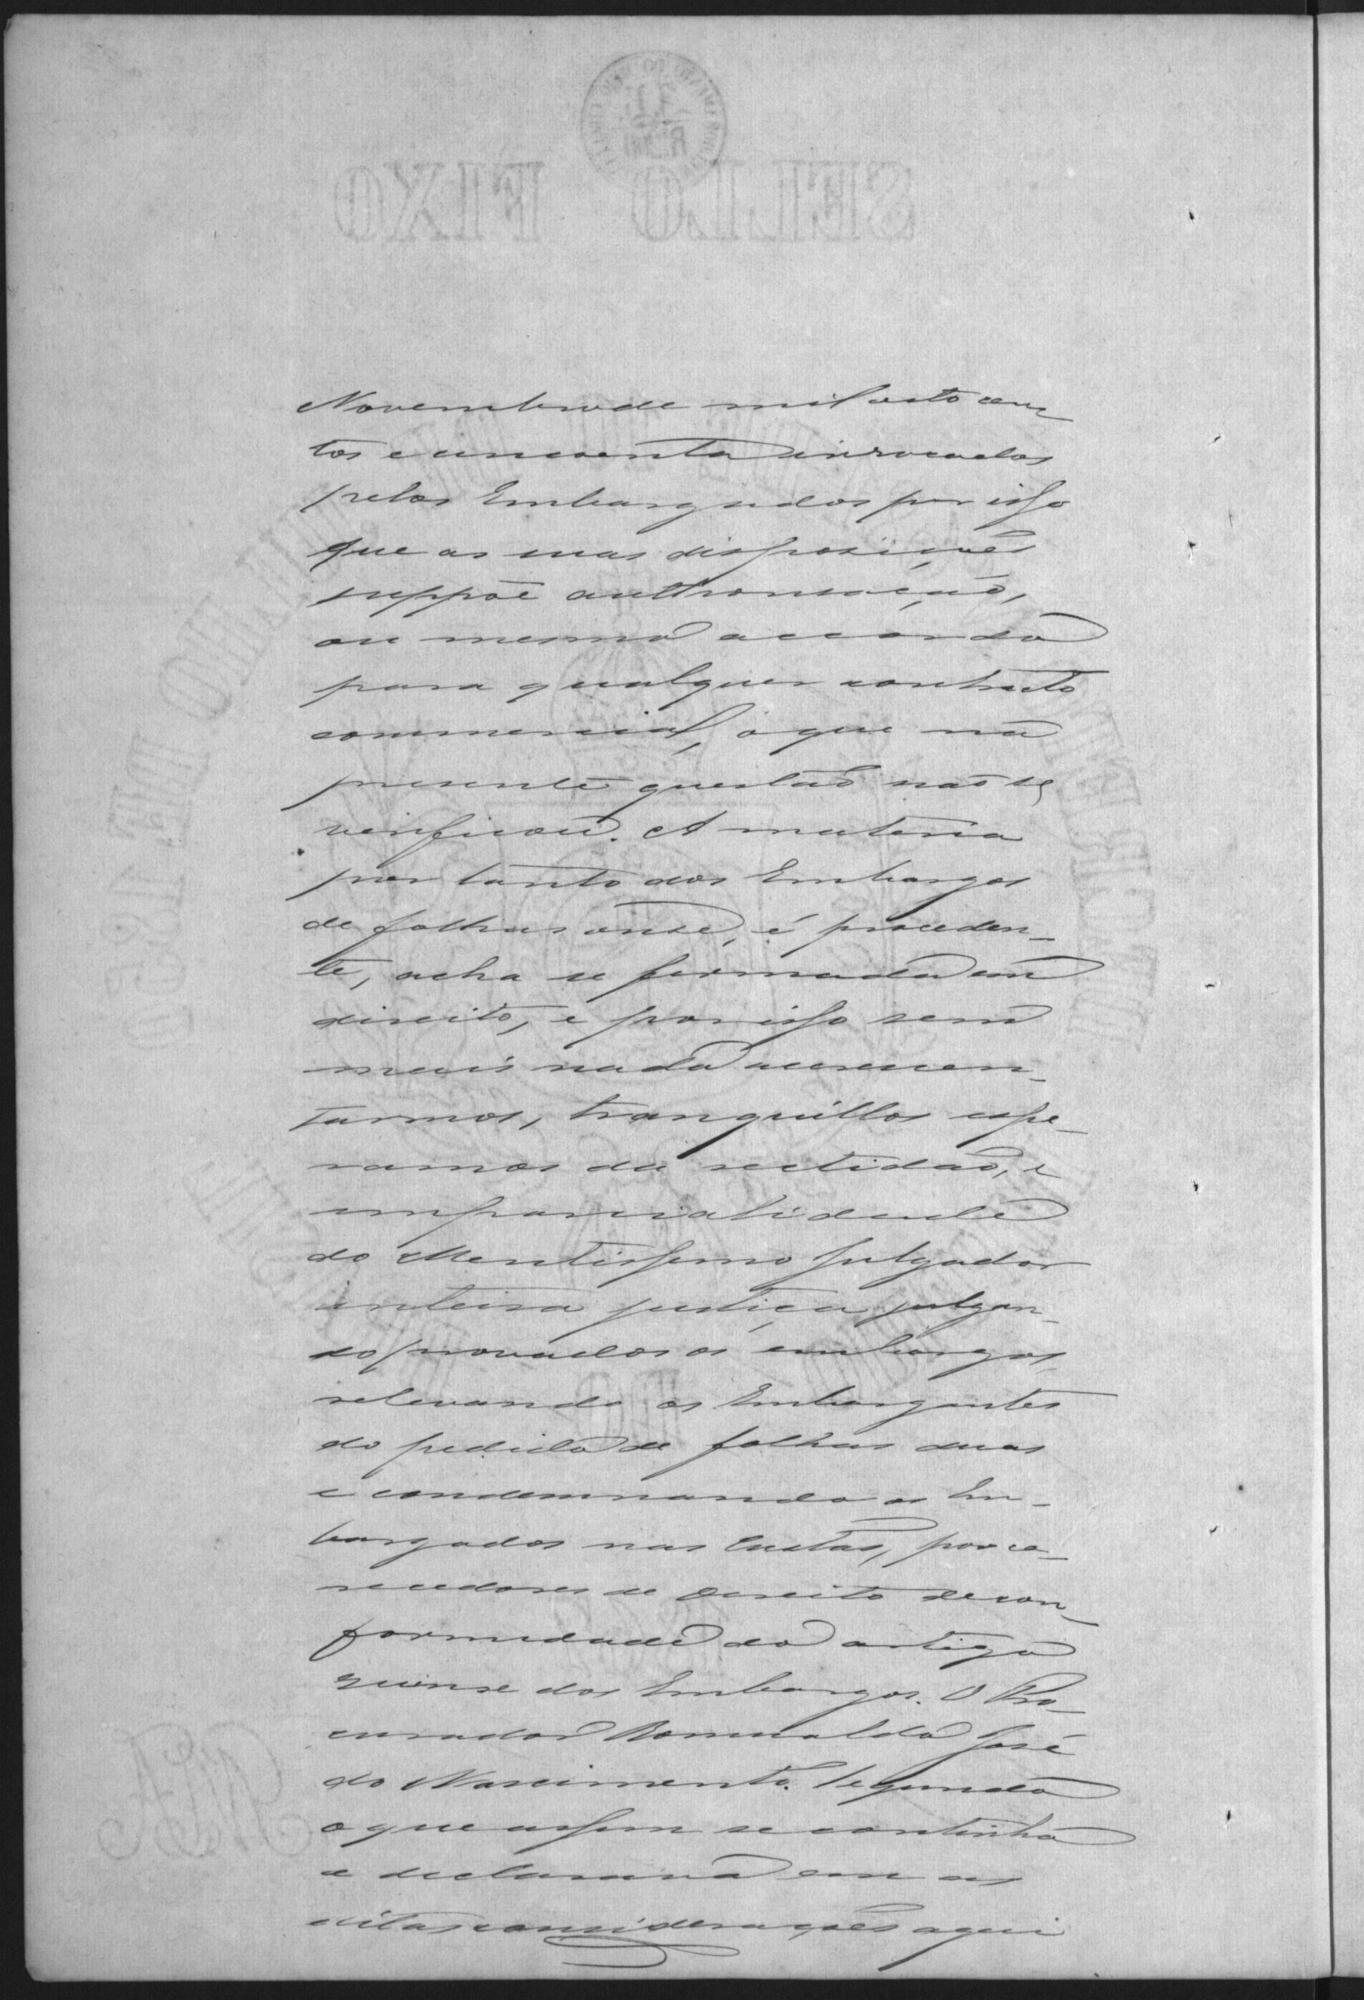 Novembro de mil oito cen
tos e cincoenta invocados
pelos Embargados por isso
que as suas disposições
suppõe authorisação,
ou mesmo accordo
para qualquer contracto
commercial, o que na
presente questão não se
verificou. A materia
por tanto dos Embargos
de folhas onse, é proceden-
te, acha se formada em
direito, e por isso sem
mais nada accrescen-
tarmos, tranquillos espe-
ramos da rectidão, e
imparcialidade
do Meritissimo Julgador
inteira justiça julgan-
do provados os embargos,
relevando os Embargantes
do pedido de folhas duas
e condemnando os Em-
bargados nas Custas, por ca-
recedores de Direito de con-
formidade do artigo
quinse dos Embargos. O Pro-
curador Romualdo José
do Nascimento. Segundo
o que assim se continha
e declarava em as
ditas considerações aqui
SELLO FIXO